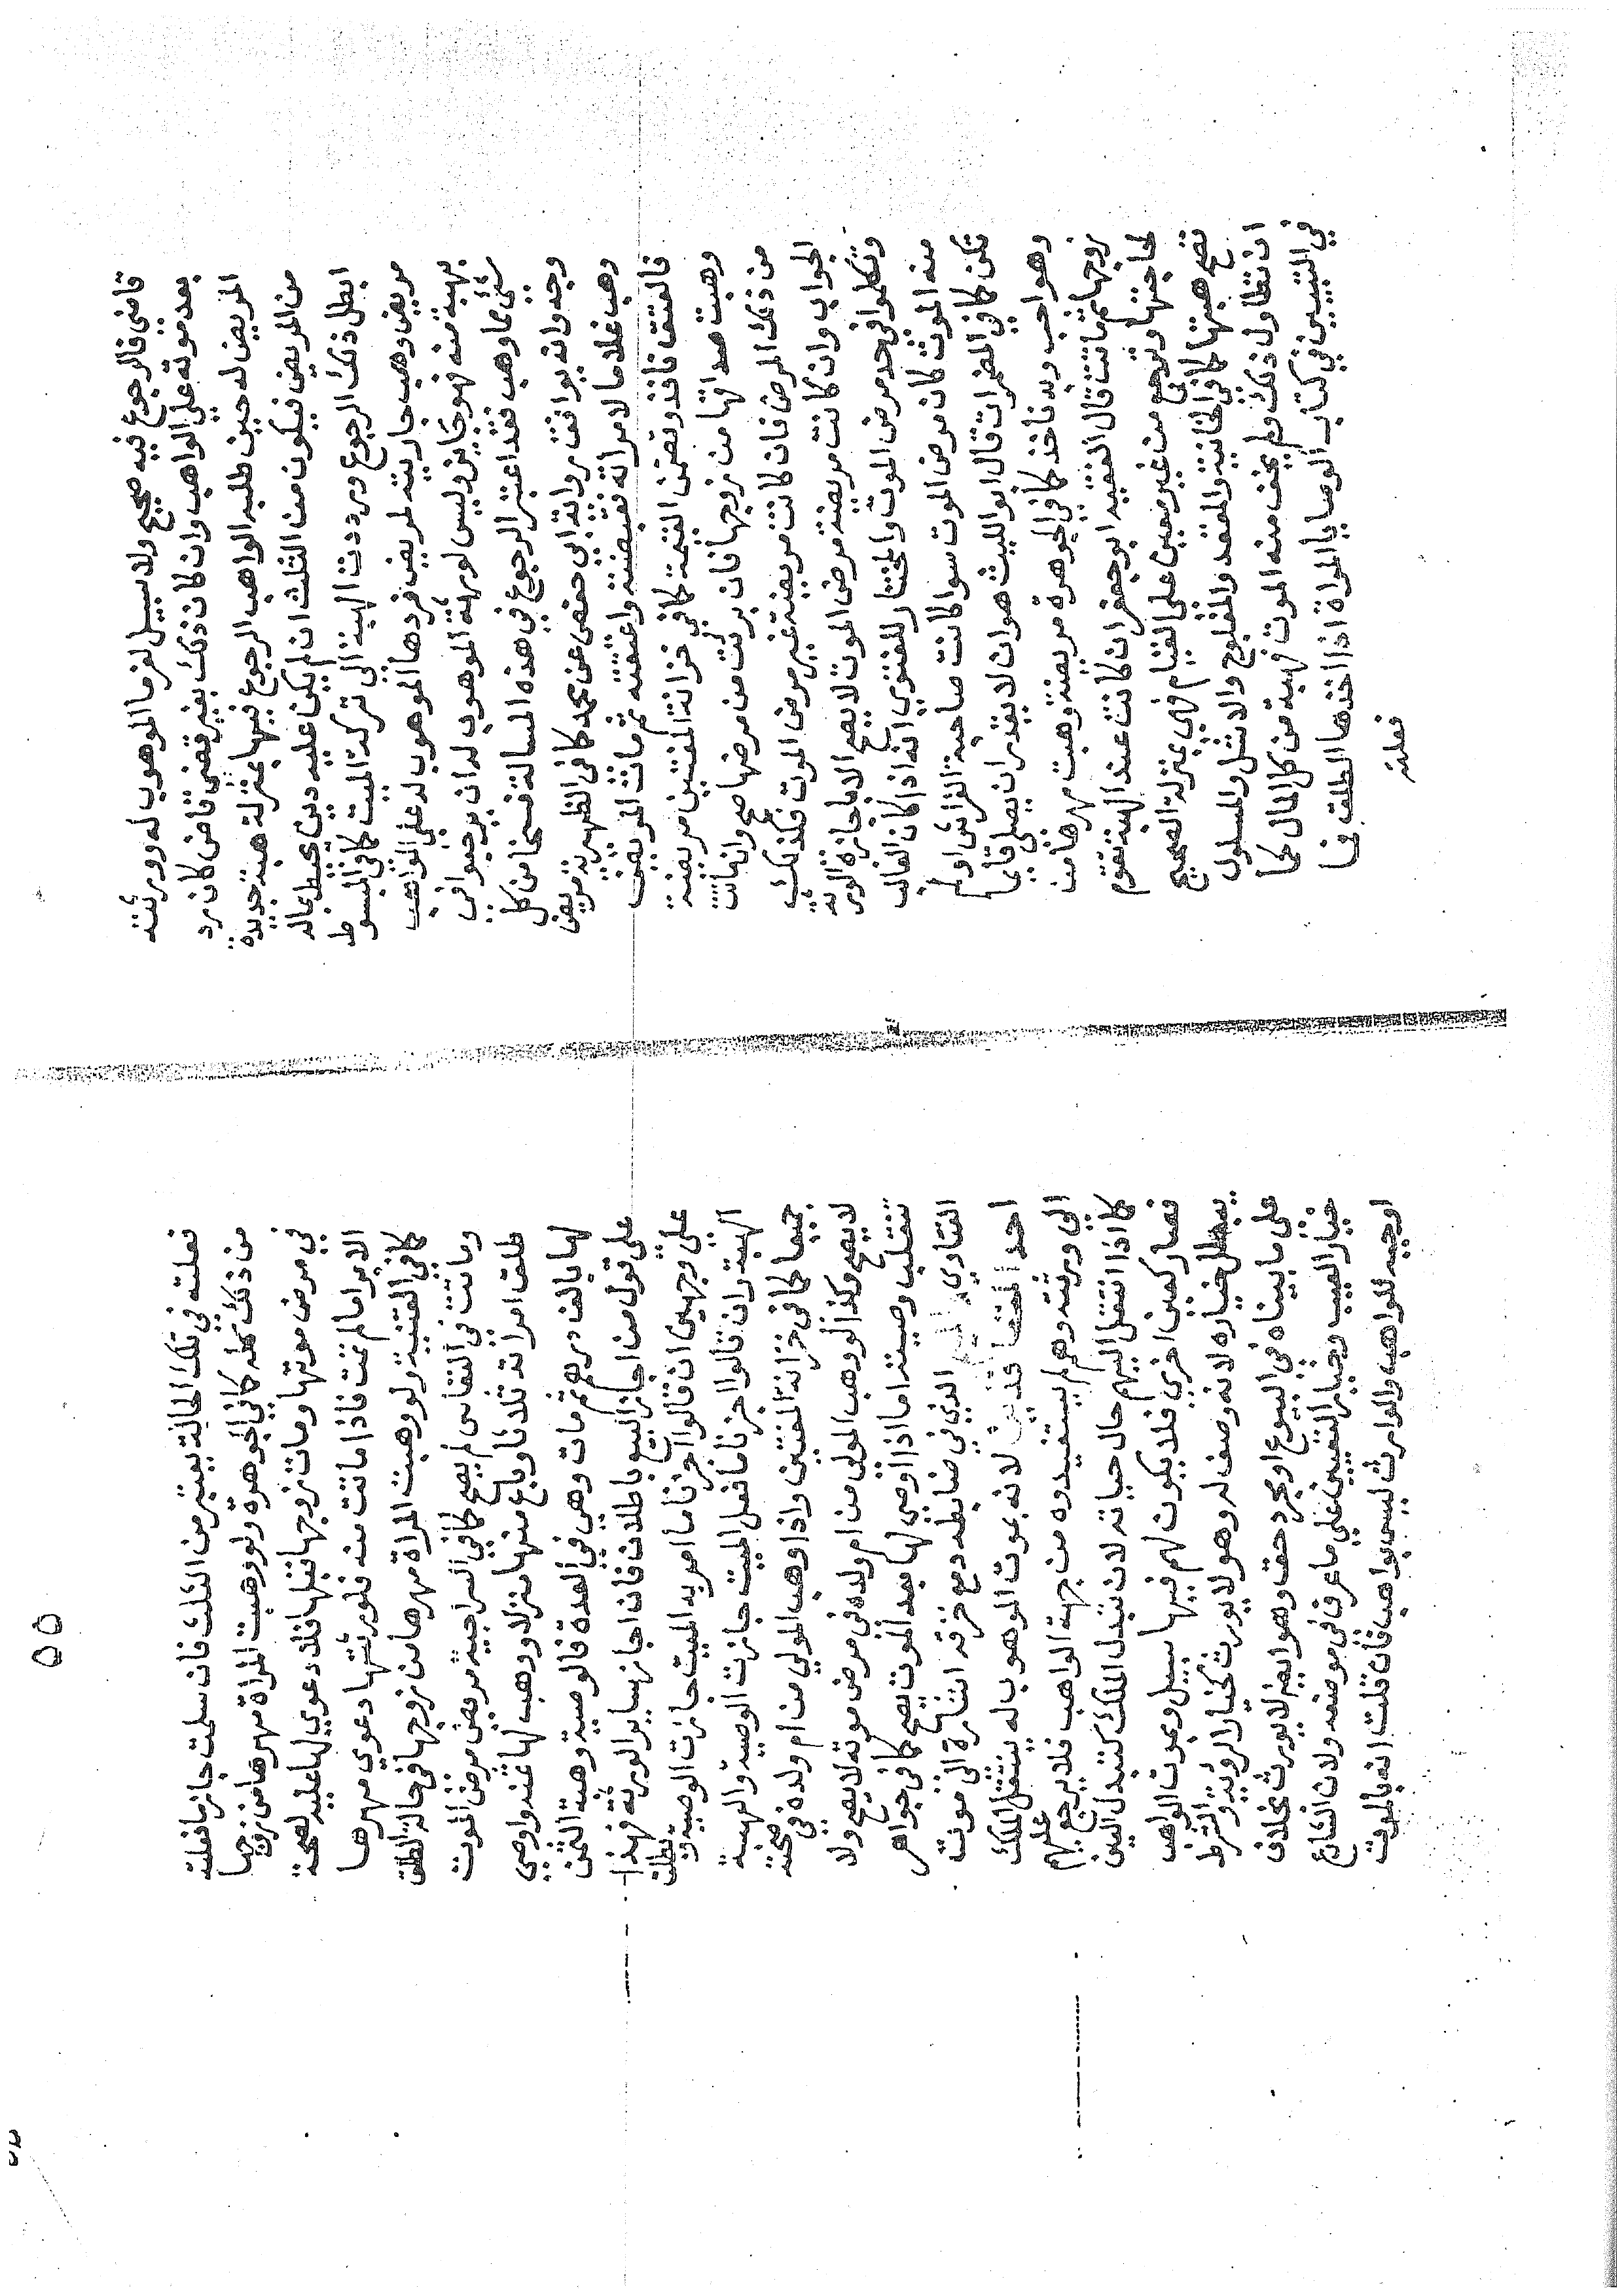 قاضي فالرجوع فيه صحيح ولا سبيل لغرما الموهوب له وورثته
بعد موته علي الواهب وان كان ذلك بغير قضي قاض كان رد
المريض له حين طلبه الواهب الرجوع فيها بمنزلة هبة جديدة
من المريض فيكون من الثلث ان لم يكن عليه دين يحيط بماله
ابطل ذلك الرجوع ورددت الهبة الي تركة الميت كما في المبسوط
مريض وهب جارية لمريض فردها الموهوب له علي الواهب
بهبة منه فهو جايز وليس لورثة الموهوب له ان يرجعوا في
شي مما وهب فقد اعتبر الرجوع في هذه المسالة فسخا من كل
وجه وانه يوافق رواية ابي حفص عن محمد كما في الظهيرية مريض
وهب غلاما لامراته فقبضته واعتقته ثم مات المريض
فالعتق نافذ وتضمن القيمة كما في خزانة المفتين مريضة
وهبت صداقها من زوجها فان برئت من مرضها صح وان ماتت
من ذلك المرض فان كانت مريضة غير مرض الموت فكذلك
الجواب وان كانت مريضة مرض الموت لا يصح الا باجازة الورثة
وتكلموا في حد مرض الموت والمختار للفتوي انه اذا كان الغالب
منه الموت كان مرض الموت سوا كانت صاحبة الفراش او لم
تكن كما في المضمرات قال ابو الليث هو ان لا يقدر ان يصلي قايما
وهو احب وبه ناخذ كما في الجوهرة مريضة وهبت مهرها من
زوجها ثم ماتت قال الفقيه ابو جعفر ان كانت عند الهبة تقوم
لحاجتها وترجع من غير معين علي القيام فهي بمنزلة الصحيح
تصح هبتها كما في الخانية والمقعد والمفلوج والاشل والمسلول
ان تطاول ذلك ولم يخف منه الموت فهبته من كل المال كما
في التبيين في كتاب الوصايا المراة اذا اخذها الطلق فما
فعلته
فعلته في تلك الحالة يعتبر من الثلث فان سلمت جاز ما فعلته
من ذلك كله كما في الجوهرة ولو وهبت المراة مهرها من زوجها
في مرض موتها ومات زوجها قبلها فلا دعوي لها عليه لصحة
الابرا ما لم تمت فاذا ماتت منه فلورثتها دعوي مهرها
كما في القنية ولو وهبت المراة مهرها من زوجها في حالة الطلق
وماتت في النفاس لم يصح كما في السراجية مريض مرض الموت
طلق امراته ثلاثا وباع منها منزلا ووهب لها ثمنه واوصي
لها بالف درهم ثم مات وهي في العدة فالوصية وهبة الثمن
علي قول من اجاز البيع باطلان فان اجاز ساير الورثة فهذا
علي وجهين ان قالوا اجزنا ما امر به الميت جازت الوصية وبطلت
الهبة وان قالوا اجزنا ما فعل الميت جازت الوصية والهبة
جميعا كما في خزانة المفتين واذا وهب المولي من ام ولده في صحته
لا يصح وكذا لو وهب المولي من ام ولده في مرض موته لا يصح ولا
تنقلب وصية اما اذا اوصي لها بعد الموت يصح كما في جواهر
الفتاوي الميم الذي في ضابطه دمع خزقه اشارة الي موت
احد المتعاقدين لانه بموت الموهوب له ينتقل الملك
الي ورثته وهم لم يستفيدوه من جهة الواهب فلا يرجع عليهم
كما اذا انتقل اليهم حال حياته لان تبدل الملك كتبدل العين
فصار كعين اخري فلا يكون لهم فيها سبيل وبموت الواهب
يبطل خياره لانه وصف له وهو لا يورث كخيار الروية والشرط
علي ما بيناه في البيوع او مجرد حق وهو ايضا لا يورث بخلاف
خيار العيب وخيار التعيين علي ما عرف في موضعه ولان الشارع
اوجبه للواهب والوارث ليس بواهب فان قلت انه بالموت